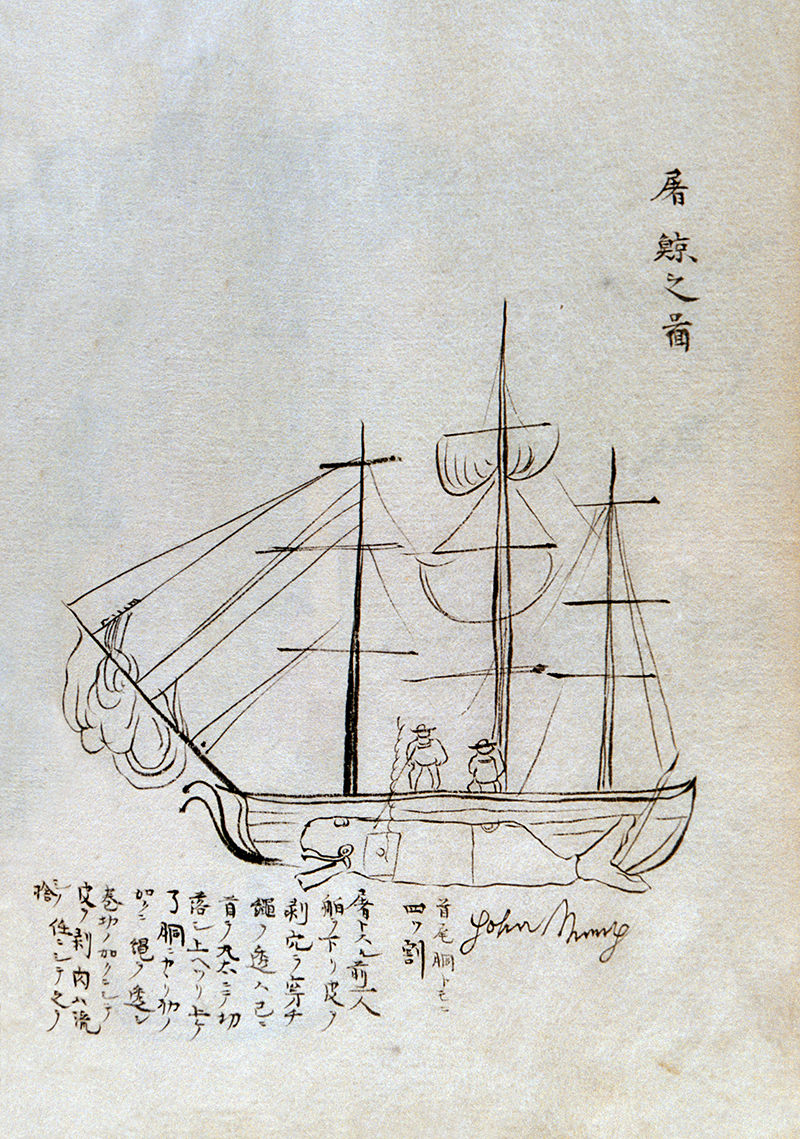 屠鯨之啚
John Mung
首尾胴トモニ
四ツ割
屠トスル前一人
舶ヲ下リ皮ヲ
剥穴ヲ穿チ
繩ヲ透ス已ニ
首ヲ丸太ニテ切
落シ上ヘツリ上ケ
了胴ニカヽリ初ノ
如クニ繩ヲ透シ
卷切ノ如クニシテ
皮ヲ剥肉ハ流
シ任ニシテ之ヲ
捨